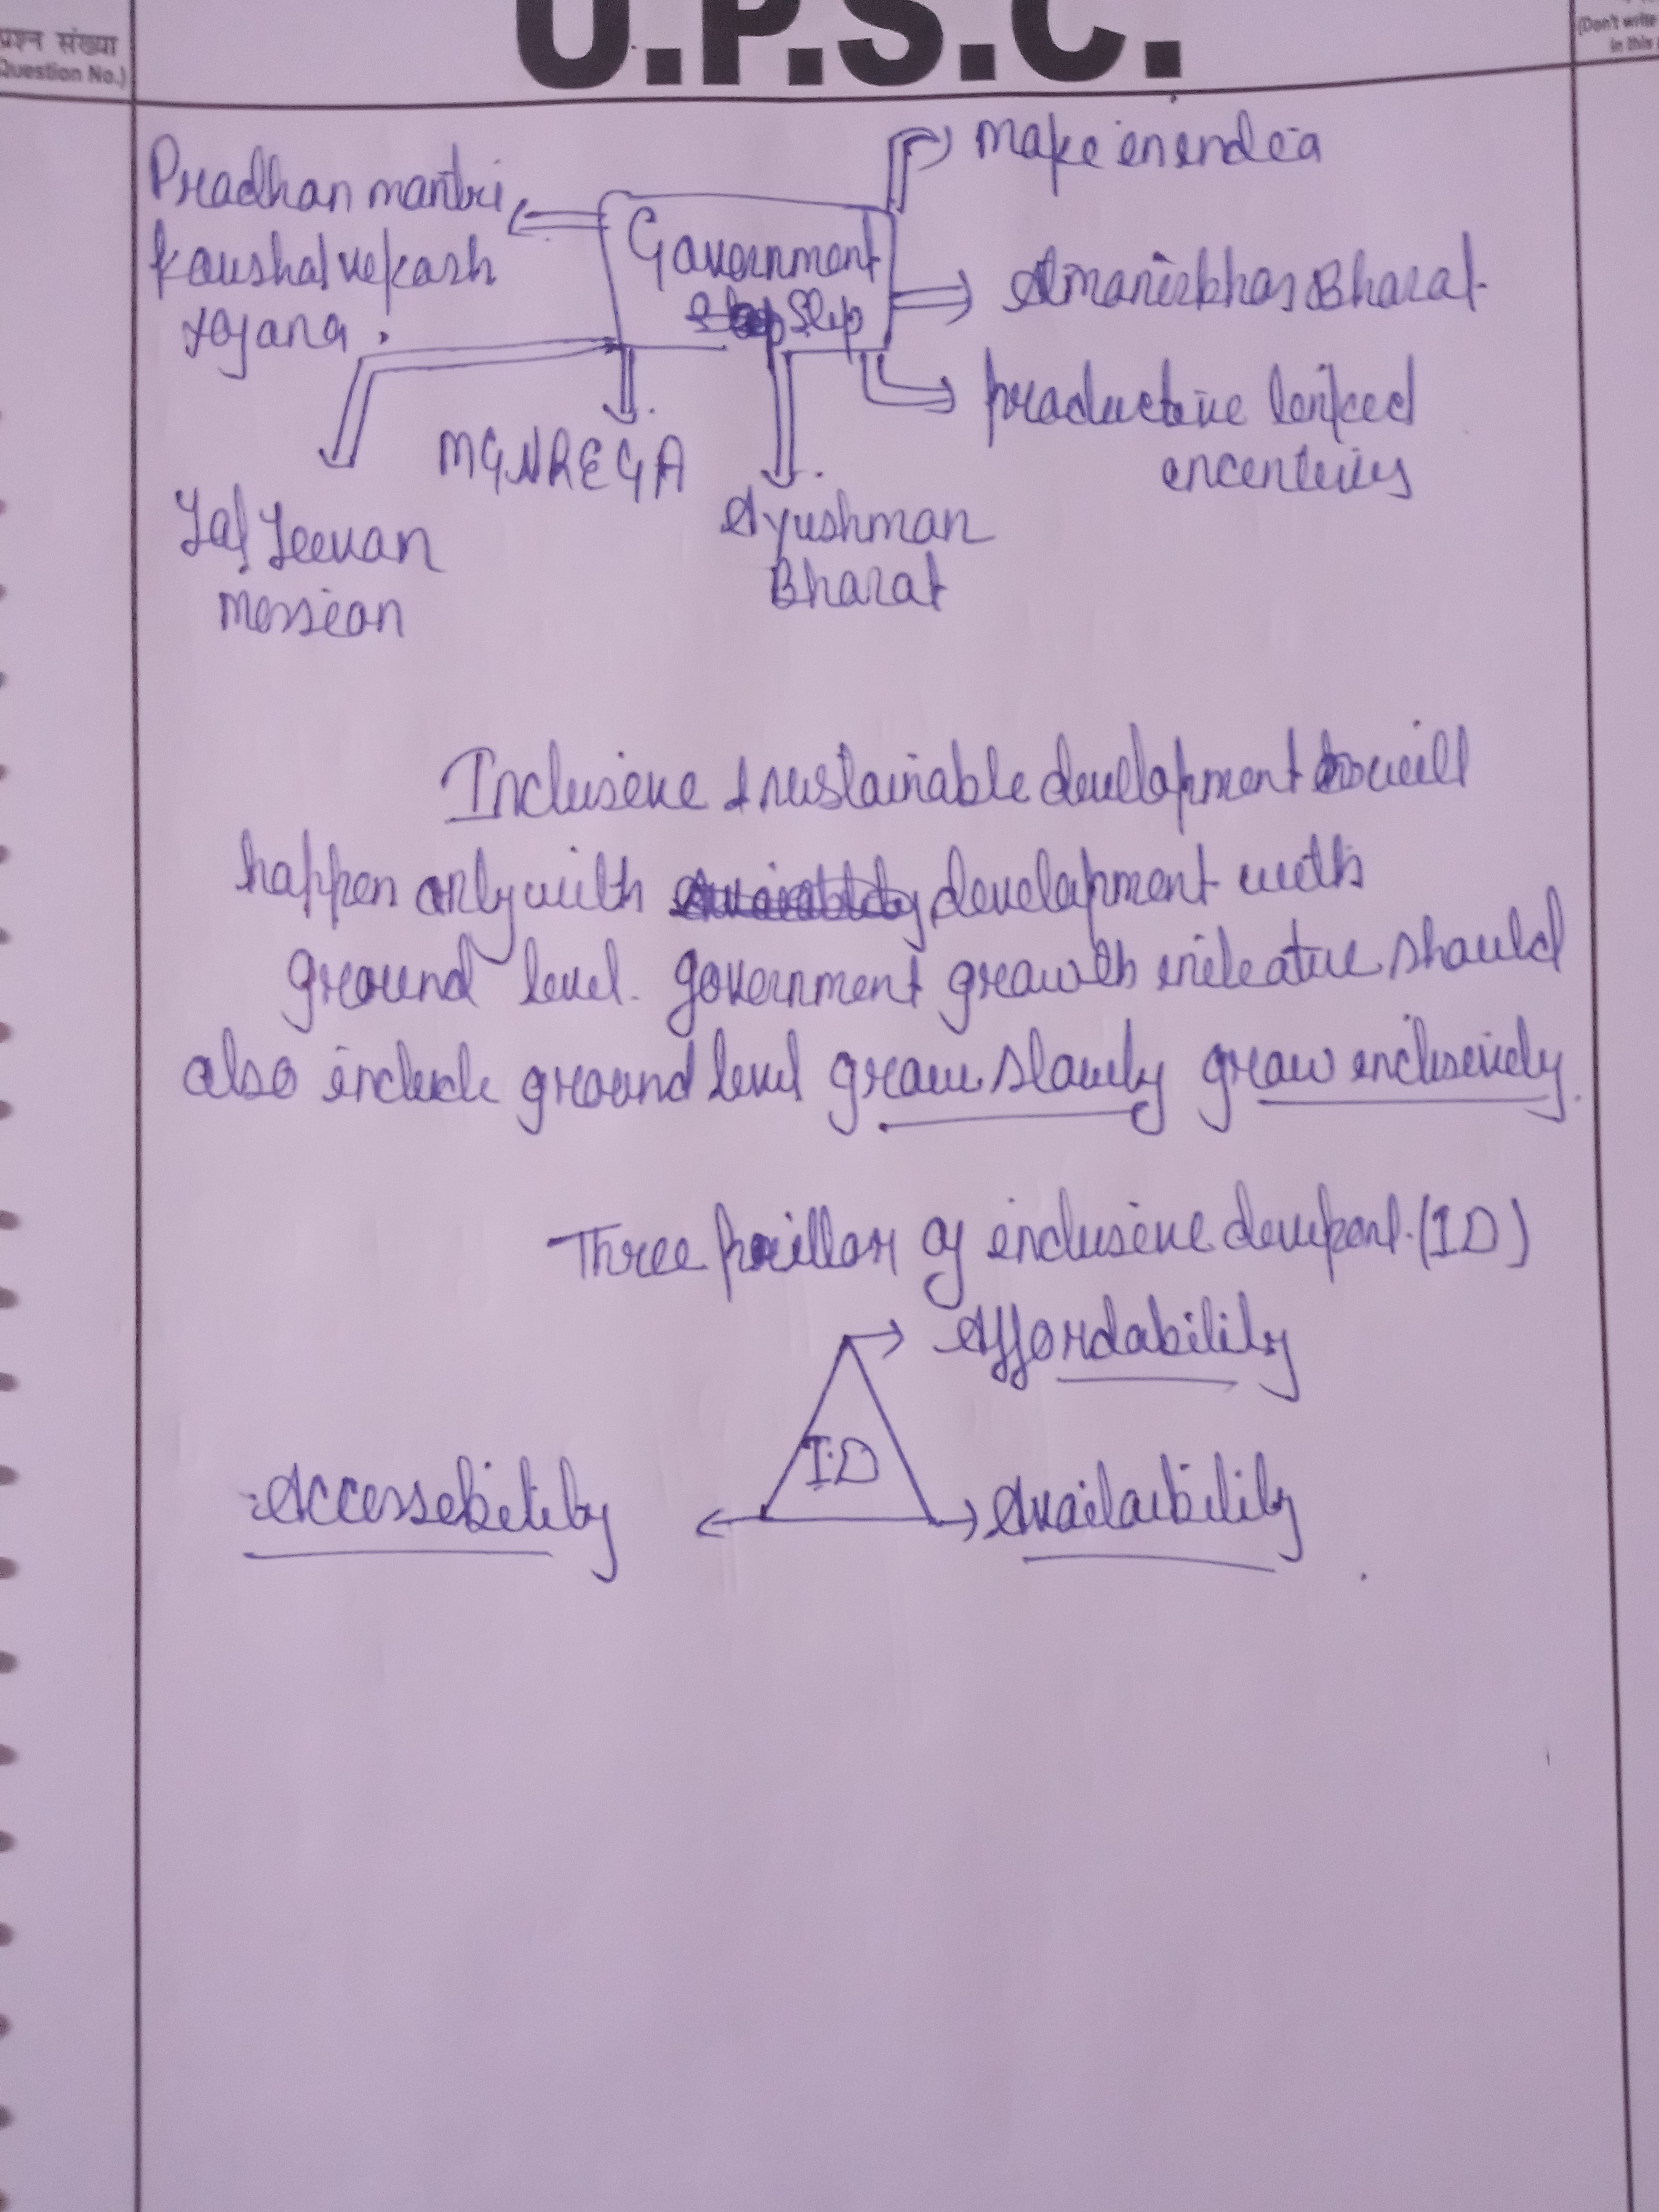 U.P.S.C.
प्रश्न संख्या
Question No.)
(Don't write
in this
make in india
Pradhan mantri
kaushal vikash
yojana
Government
Step
Atmanirbhar Bharat
productive linked
incentives
MGNREGA
Ayushman
Bharat
Jal Jeevan
mission
Inclusive & sustainable development will
happen only with development with
ground level. government growth initiative should
also include ground level grow slowly grow inclusively.
Three pillar of inclusive (ID)
Affordability
ID
Accessebility
Availability